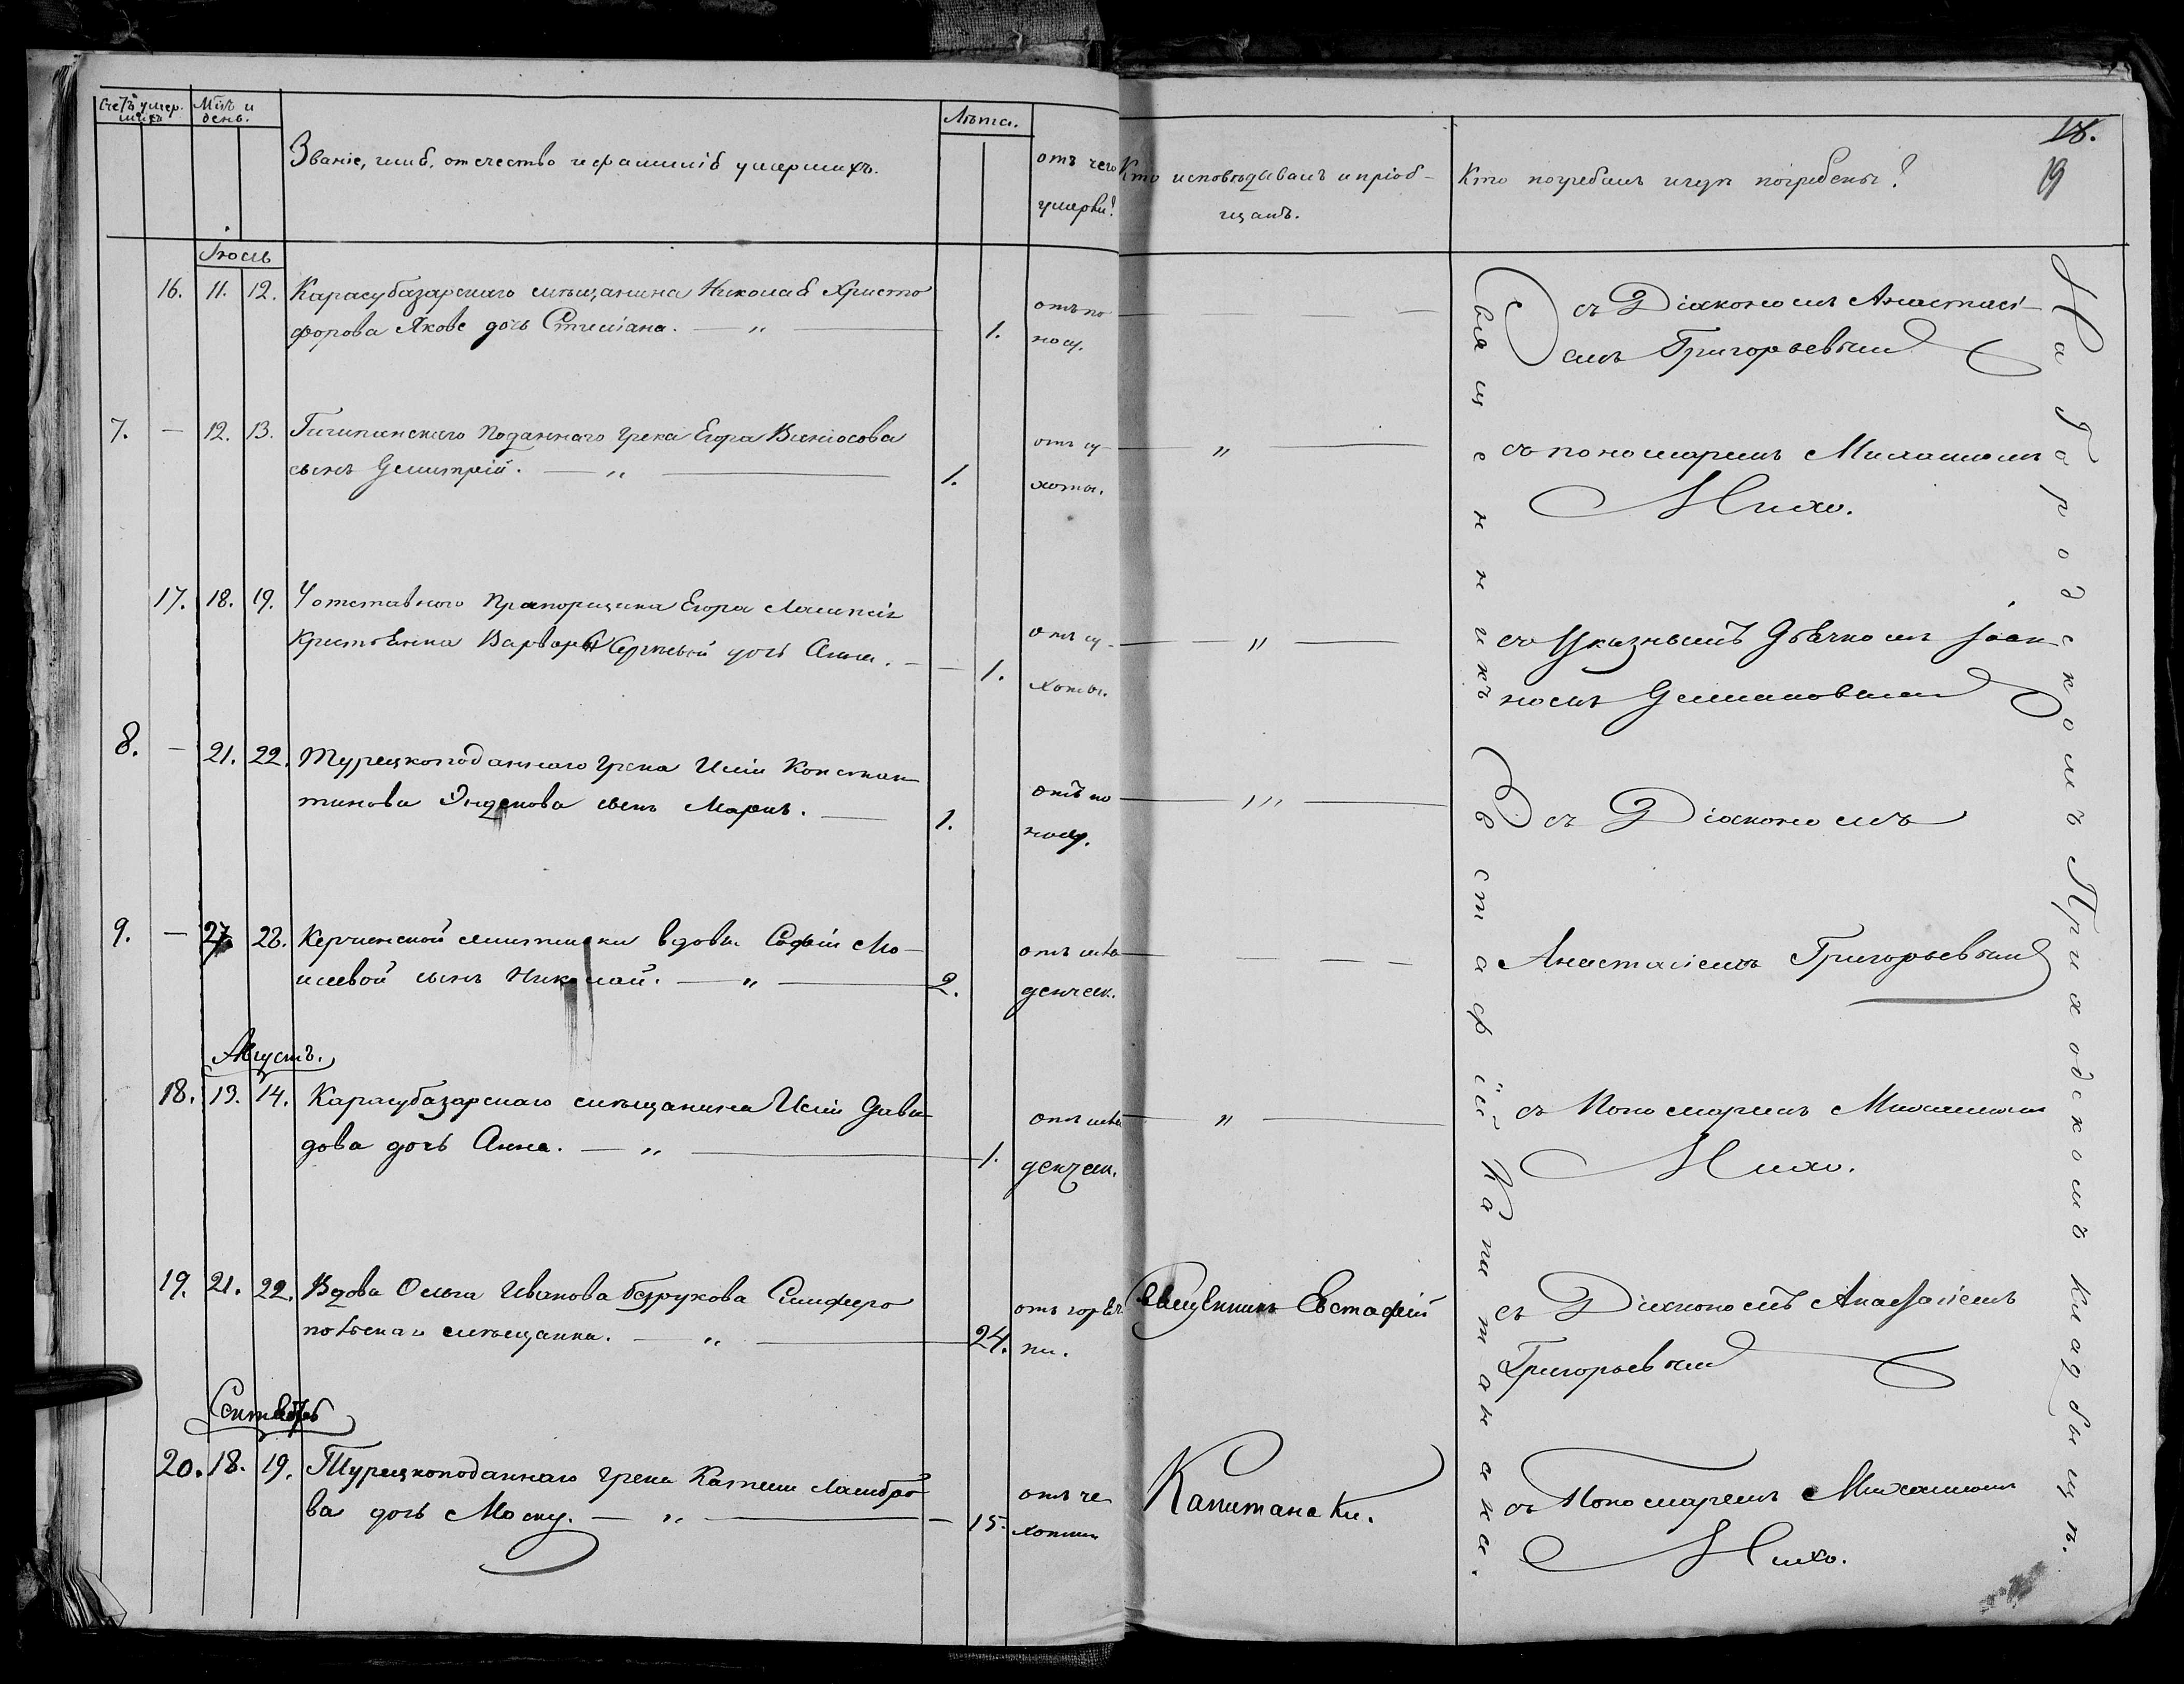 Счетъ умер-
шихъ
Мѣс. и
день.
Званіе, имя, отчество и фамилія умершихъ.
Лѣта.
отъ чего
умерли?
Кто исповѣдывалъ и пріоб-
щалъ.
Кто погребалъ и гдѣ погребены?
18.
19
Іюль
16. 11. 12. Карасубазарскаго мѣщанина Николая Христо
форова Якове дочь Стиліана. — „ — 1. отъ по
носу.
съ Діакономъ Анастасі-
емъ Григорьевымъ
7. — 12. 13. подданнаго Грека Егора
сынъ Димитрій. — „ — 1. отъ су-
хоты. — „ —
съ пономаремъ Михаиломъ
Михо.
17. 18. 19. У отставнаго Прапорщика Егора
Варвары дочь Анна. — 1. отъ су-
хоты. — „ —
съ Указнымъ Дьячкомъ Іоан-
номъ
8. — 21. 22. Турецкоподаннаго Грека Иліи Констан
тинова сынъ Маркъ. — 1. отъ по
носу. — „ —
съ Діакономъ
9. — 27. 28. Керченской мѣщанки вдовы Софіи Мо-
сынъ Николай. — „ — 2. отъ мла-
денческ.
Анастасіемъ Григорьевымъ
Августъ.
18. 13. 14. Карасубазарскаго мѣщанина Иліи Дави
дова дочь Анна. — „ — 1. отъ мла
денческ. — „ —
съ Пономаремъ Михаиломъ
Михо.
19. 21. 22. Вдова Ольга Иванова Безрукова Симферо
польская мѣщанка. — „ — 24. отъ горяч
ки.
Священникъ Евстафій
съ Діакономъ Анастасіемъ
Григорьевымъ
Сентябрь
20. 18. 19. Турецкоподаннаго Грека Ламбро
ва дочь Моску. — „ — 15. отъ че
хотки
Капитанаки.
съ Пономаремъ Михаиломъ
Михо.
Священникъ Евстафій Капитанаки.
На Городскомъ Приходскомъ кладбищѣ.